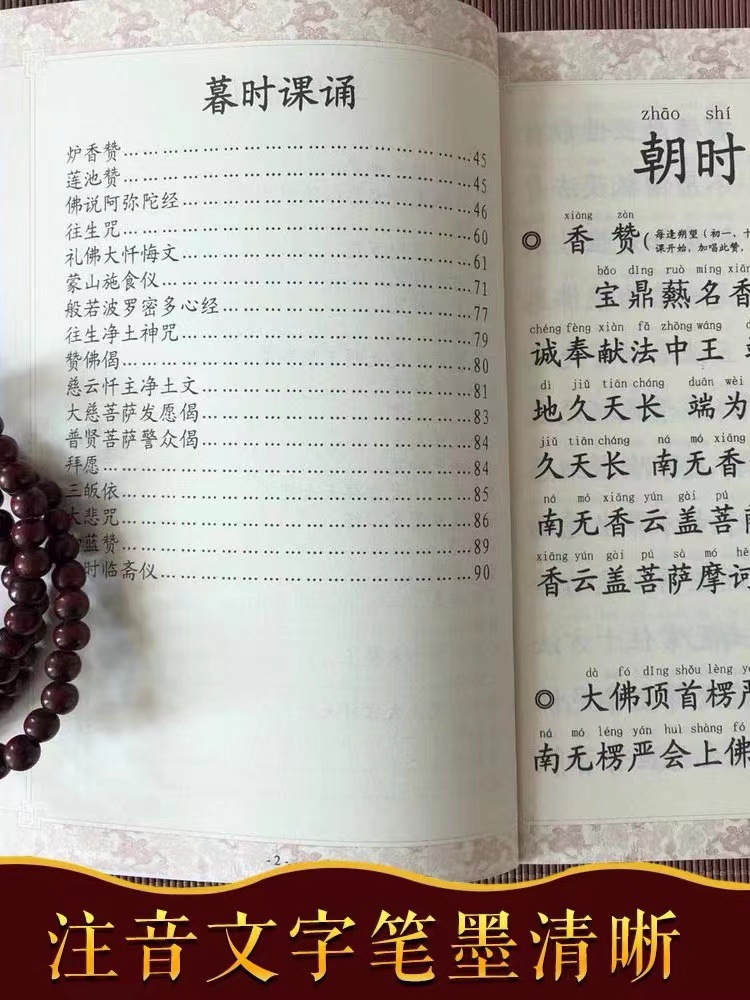 暮时课诵
炉香赞………………………………………45
莲池赞………………………………………45
佛说阿弥陀经………………………………46
往生咒………………………………………60
礼佛大忏悔文………………………………61
蒙山施食仪…………………………………71
般若波罗密多心经…………………………77
往生净土神咒………………………………79
赞佛偈………………………………………80
慈云忏主净土文……………………………81
大慈菩萨发愿偈……………………………83
普贤菩萨警众偈……………………………84
拜愿…………………………………………84
三皈依………………………………………85
大悲咒………………………………………86
蓝赞…………………………………………89
时临斋仪……………………………………90
-2-
zhāo shí
朝时
xiāng zàn
◎ 香赞(每逢朔望(初一、十
课开始，加唱此赞，
bǎo dǐng ruò míng xiāng
宝鼎爇名香
chéng fèng xiàn fǎ zhōng wáng
诚奉献法中王
dì jiǔ tiān cháng duān wèi
地久天长 端为
jiǔ tiān cháng ná mó xiāng
久天长 南无香
ná mó xiāng yún gài pú
南无香云盖菩萨
xiāng yún gài pú sà mó hē
香云盖菩萨摩诃
dà fó dǐng shǒu léng yán
◎ 大佛顶首楞严
ná mó léng yán huì shàng fó
南无楞严会上佛
注音文字笔墨清晰